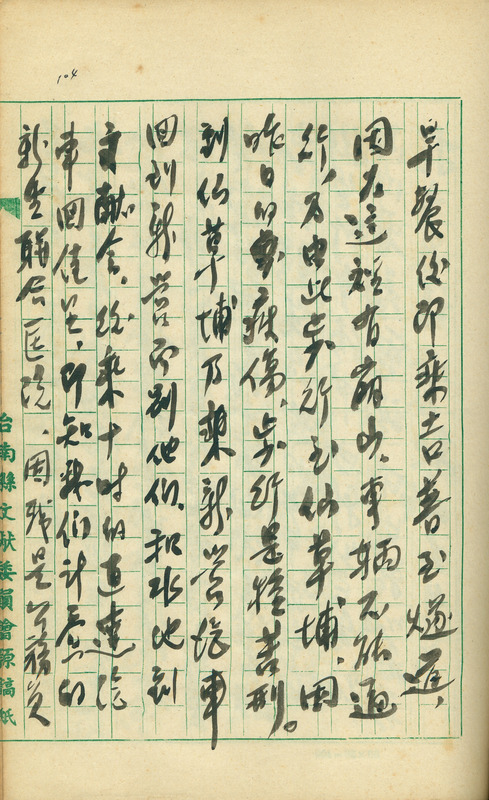 104
早餐後即乘吉普至燧道,
因右邊裡有崩山,車輛不能通
行,乃由此步行至仙草埔,因
昨日的疲傷,步行是種苦刑。
到仙草埔乃乘新營汽車
回到新營而別他們,和水池到
文獻會,後乘十時的直達汽
車回佳里,即知我們計劃的
新生聯合医院,因我是公務員
台南縣文献委員會原稿紙